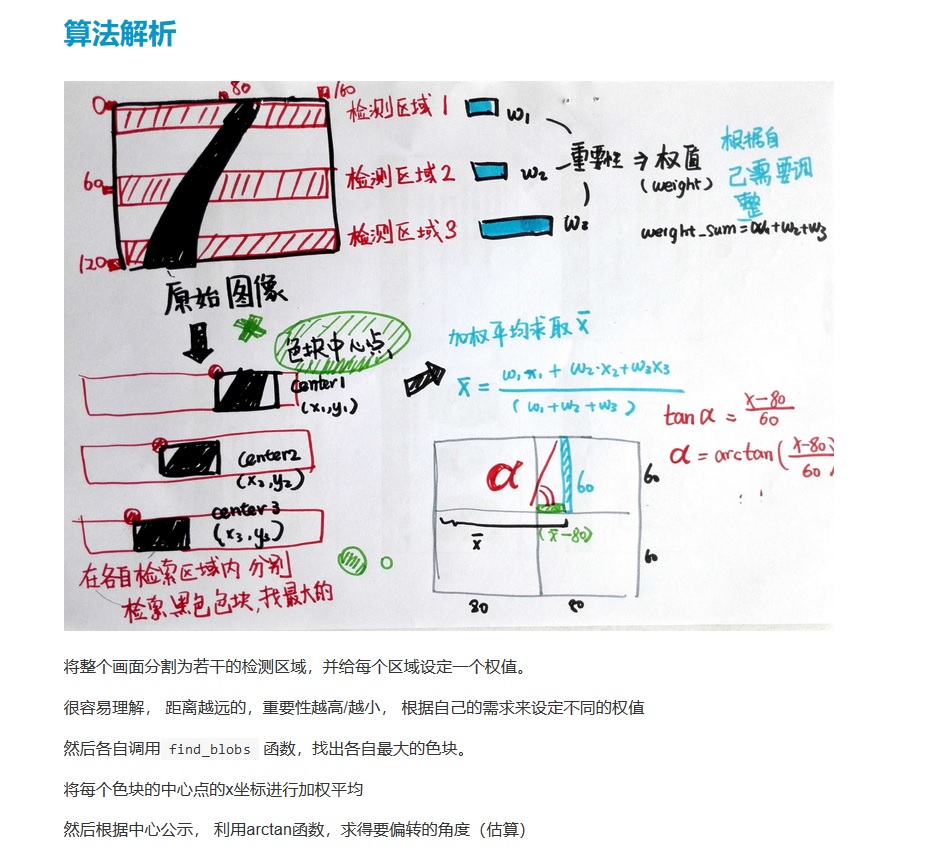 算法解析
0
80
160
60
120
检测区域1
w₁
检测区域2
w₂
检测区域3
w₃
重要性 → 权值
(weight)
根据自
己需要调
整
weight_sum=w₁+w₂+w₃
原始图像
色块中心点
center1
(x₁,y₁)
center2
(x₂,y₂)
center3
(x₃,y₃)
在各自检索区域内 分别
检索黑色色块,找最大的
加权平均求取 x̄
x̄ = w₁·x₁ + w₂·x₂+w₃x₃
(w₁+w₂+w₃)
tanα = x-80
60
α = arctan(x-80
60)
α
60
x̄
(x̄-80)
60
60
80
80
将整个画面分割为若干的检测区域，并给每个区域设定一个权值。
很容易理解， 距离越远的，重要性越高/越小， 根据自己的需求来设定不同的权值
然后各自调用 find_blobs 函数，找出各自最大的色块。
将每个色块的中心点的x坐标进行加权平均
然后根据中心公示， 利用arctan函数，求得要偏转的角度（估算）